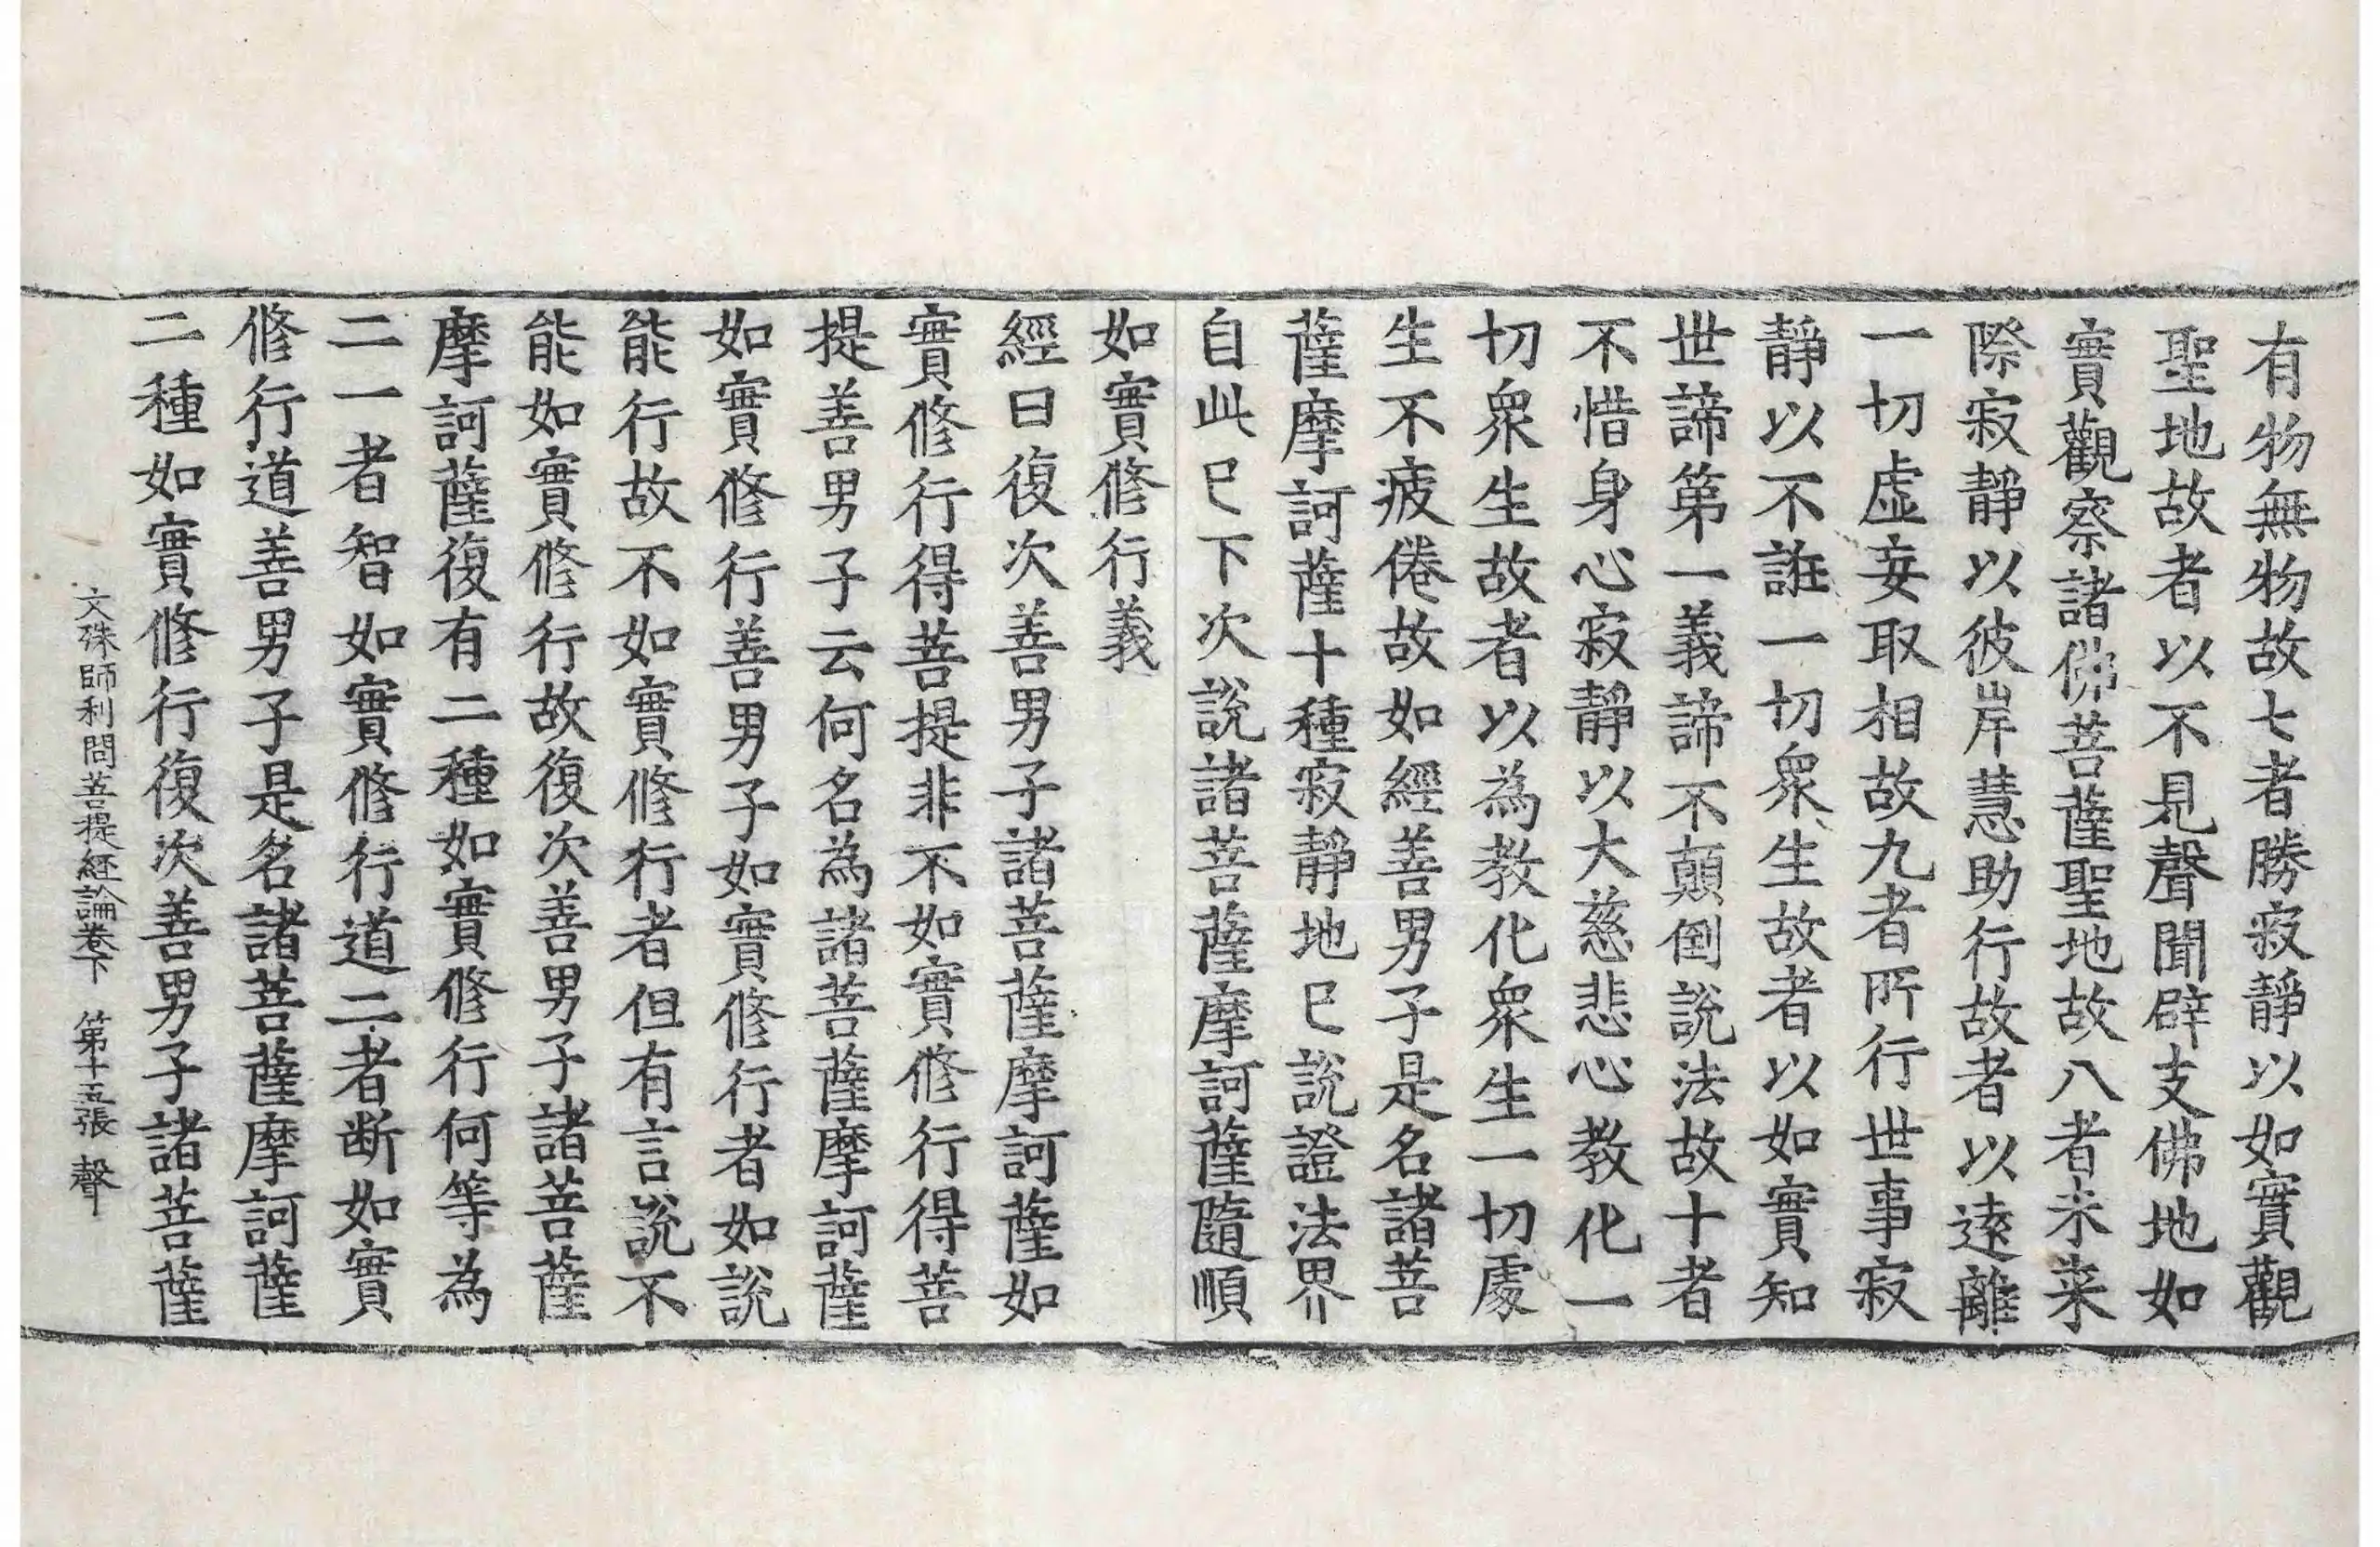 有物無物故七者勝寂靜以如實觀
聖地故者以不見聲聞辟支佛地如
實觀察諸佛菩薩聖地故八者未来
際寂靜以彼岸慧助行故者以遠離
一切虛妄取相故九者所行世事寂
靜以不誑一切衆生故者以如實知
世諦第一義諦不顛倒說法故十者
不惜身心寂靜以大慈悲心教化一
切衆生故者以為教化衆生一切處
生不疲倦故如經善男子是名諸菩
薩摩訶薩十種寂靜地巳說證法界
自此巳下次說諸菩薩摩訶薩隨順
如實修行義
經曰復次善男子諸菩薩摩訶薩如
實修行得菩提非不如實修行得菩
提善男子云何名為諸菩薩摩訶薩
如實修行善男子如實修行者如說
能行故不如實修行者但有言說不
能如實修行故復次善男子諸菩薩
摩訶薩復有二種如實修行何等為
二一者智如實修行道二者断如實
修行道善男子是名諸菩薩摩訶薩
二種如實修行復次善男子諸菩薩
文殊師利問菩提經論卷下 第十五張 聲